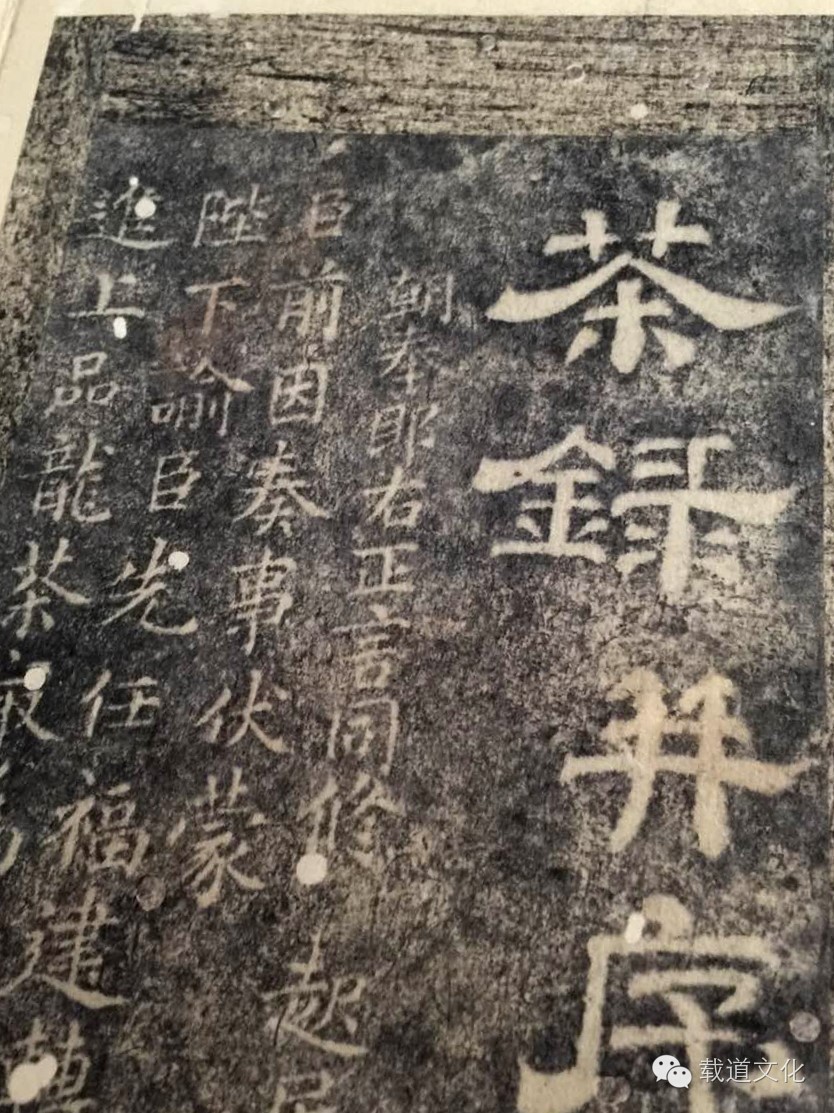 茶録并序
朝奉郎右正言同修起
臣前因奏事伏蒙
陛下喻臣先任福建轉
進上品龍茶
载道文化